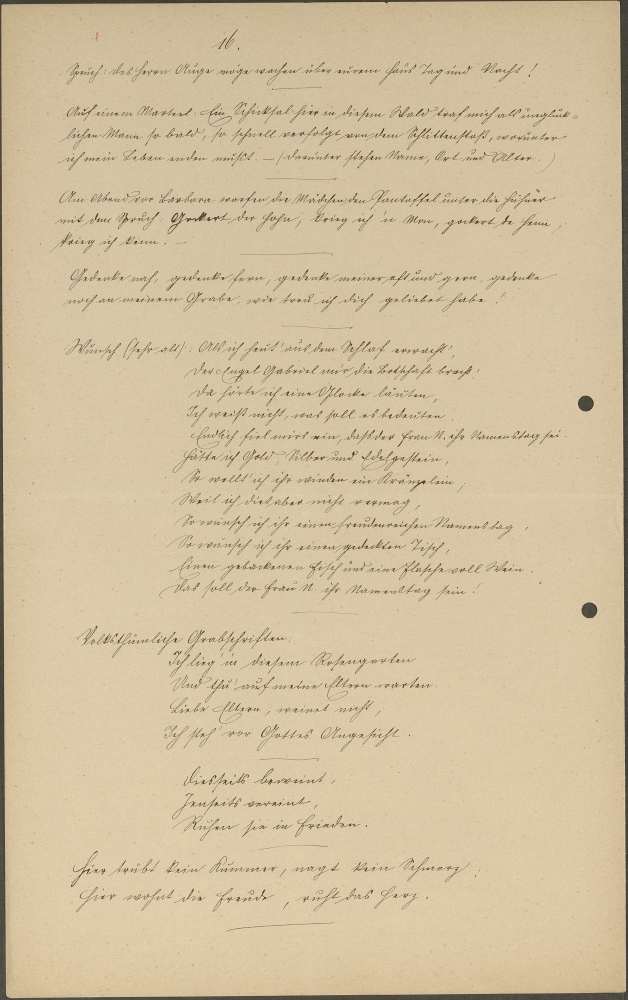 16.
Spruch: Des Herrn Auge möge wachen über eurem Haus Tag und Nacht!
Auf einem Marterl. Ein Schicksal hier in diesem Wald traf mich als unglück-
lichen Mann so bald, so schnell verfolgt von dem Schlittenstoß, worunter
ich mein Leben enden mußt. – (Darunter stehen Name, Ort und Alter.)
Am Abend vor Barbara werfen die Mädchen den Pantoffel unter die Hühner
mit dem Spruch Gockert der Hohn, krieg ich 'n Mon, gockert de Henn,
krieg ich kenn. –
Gedenke nah, gedenke fern, gedenke meiner oft und gern, gedenke
noch an meinem Grabe, wie treu ich dich geliebet habe!
Wunsch (sehr alt): Als ich heut' aus dem Schlaf erwacht,
Der Engel Gabriel mir die Botschaft bracht.
Da hörte ich eine Glocke läuten,
Ich weiß nicht, was soll es bedeuten.
Endlich fiel mirs ein, daß der Frau N. ihr Namenstag sei.
Hätte ich Gold, Silber und Edelgestein,
So wollt' ich ihr winden ein Kränzelein;
Weil ich dies aber nicht vermag,
So wünsch ich ihr einen freudenreichen Namenstag,
So wünsch ich ihr einen gedeckten Tisch,
Einen gebackenen Fisch und eine Flasche voll Wein.
Das soll der Frau N. ihr Namenstag sein!
Volksthümliche Grabschriften.
Ich lieg' in diesem Rosengarten
Und thu' auf meine Eltern warten.
Liebe Eltern, weinet nicht,
Ich steh' vor Gottes Angesicht.
Diesseits beweint,
Jenseits vereint,
Ruhen sie in Frieden.
Hier trübt kein Kummer, nagt kein Schmerz;
Hier wohnt die Freude, ruht das Herz.